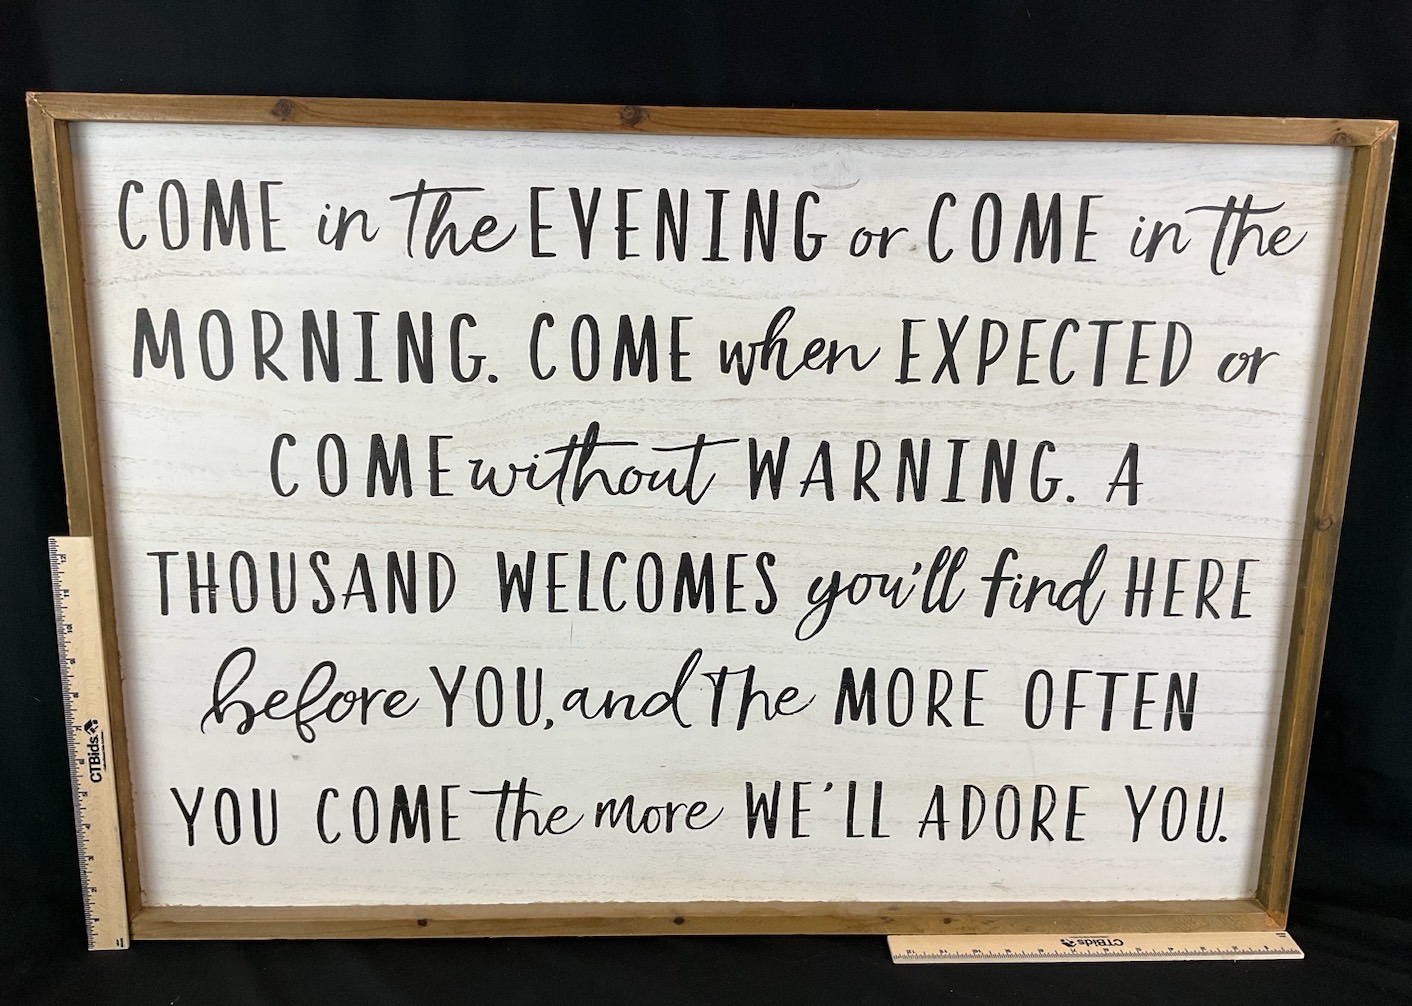 COME in the EVENING or COME in the
MORNING. COME when EXPECTED or
COME without WARNING. A
THOUSAND WELCOMES you'll find HERE
before YOU, and the MORE OFTEN
YOU COME the more WE'LL ADORE YOU.
CTBids
CTBids